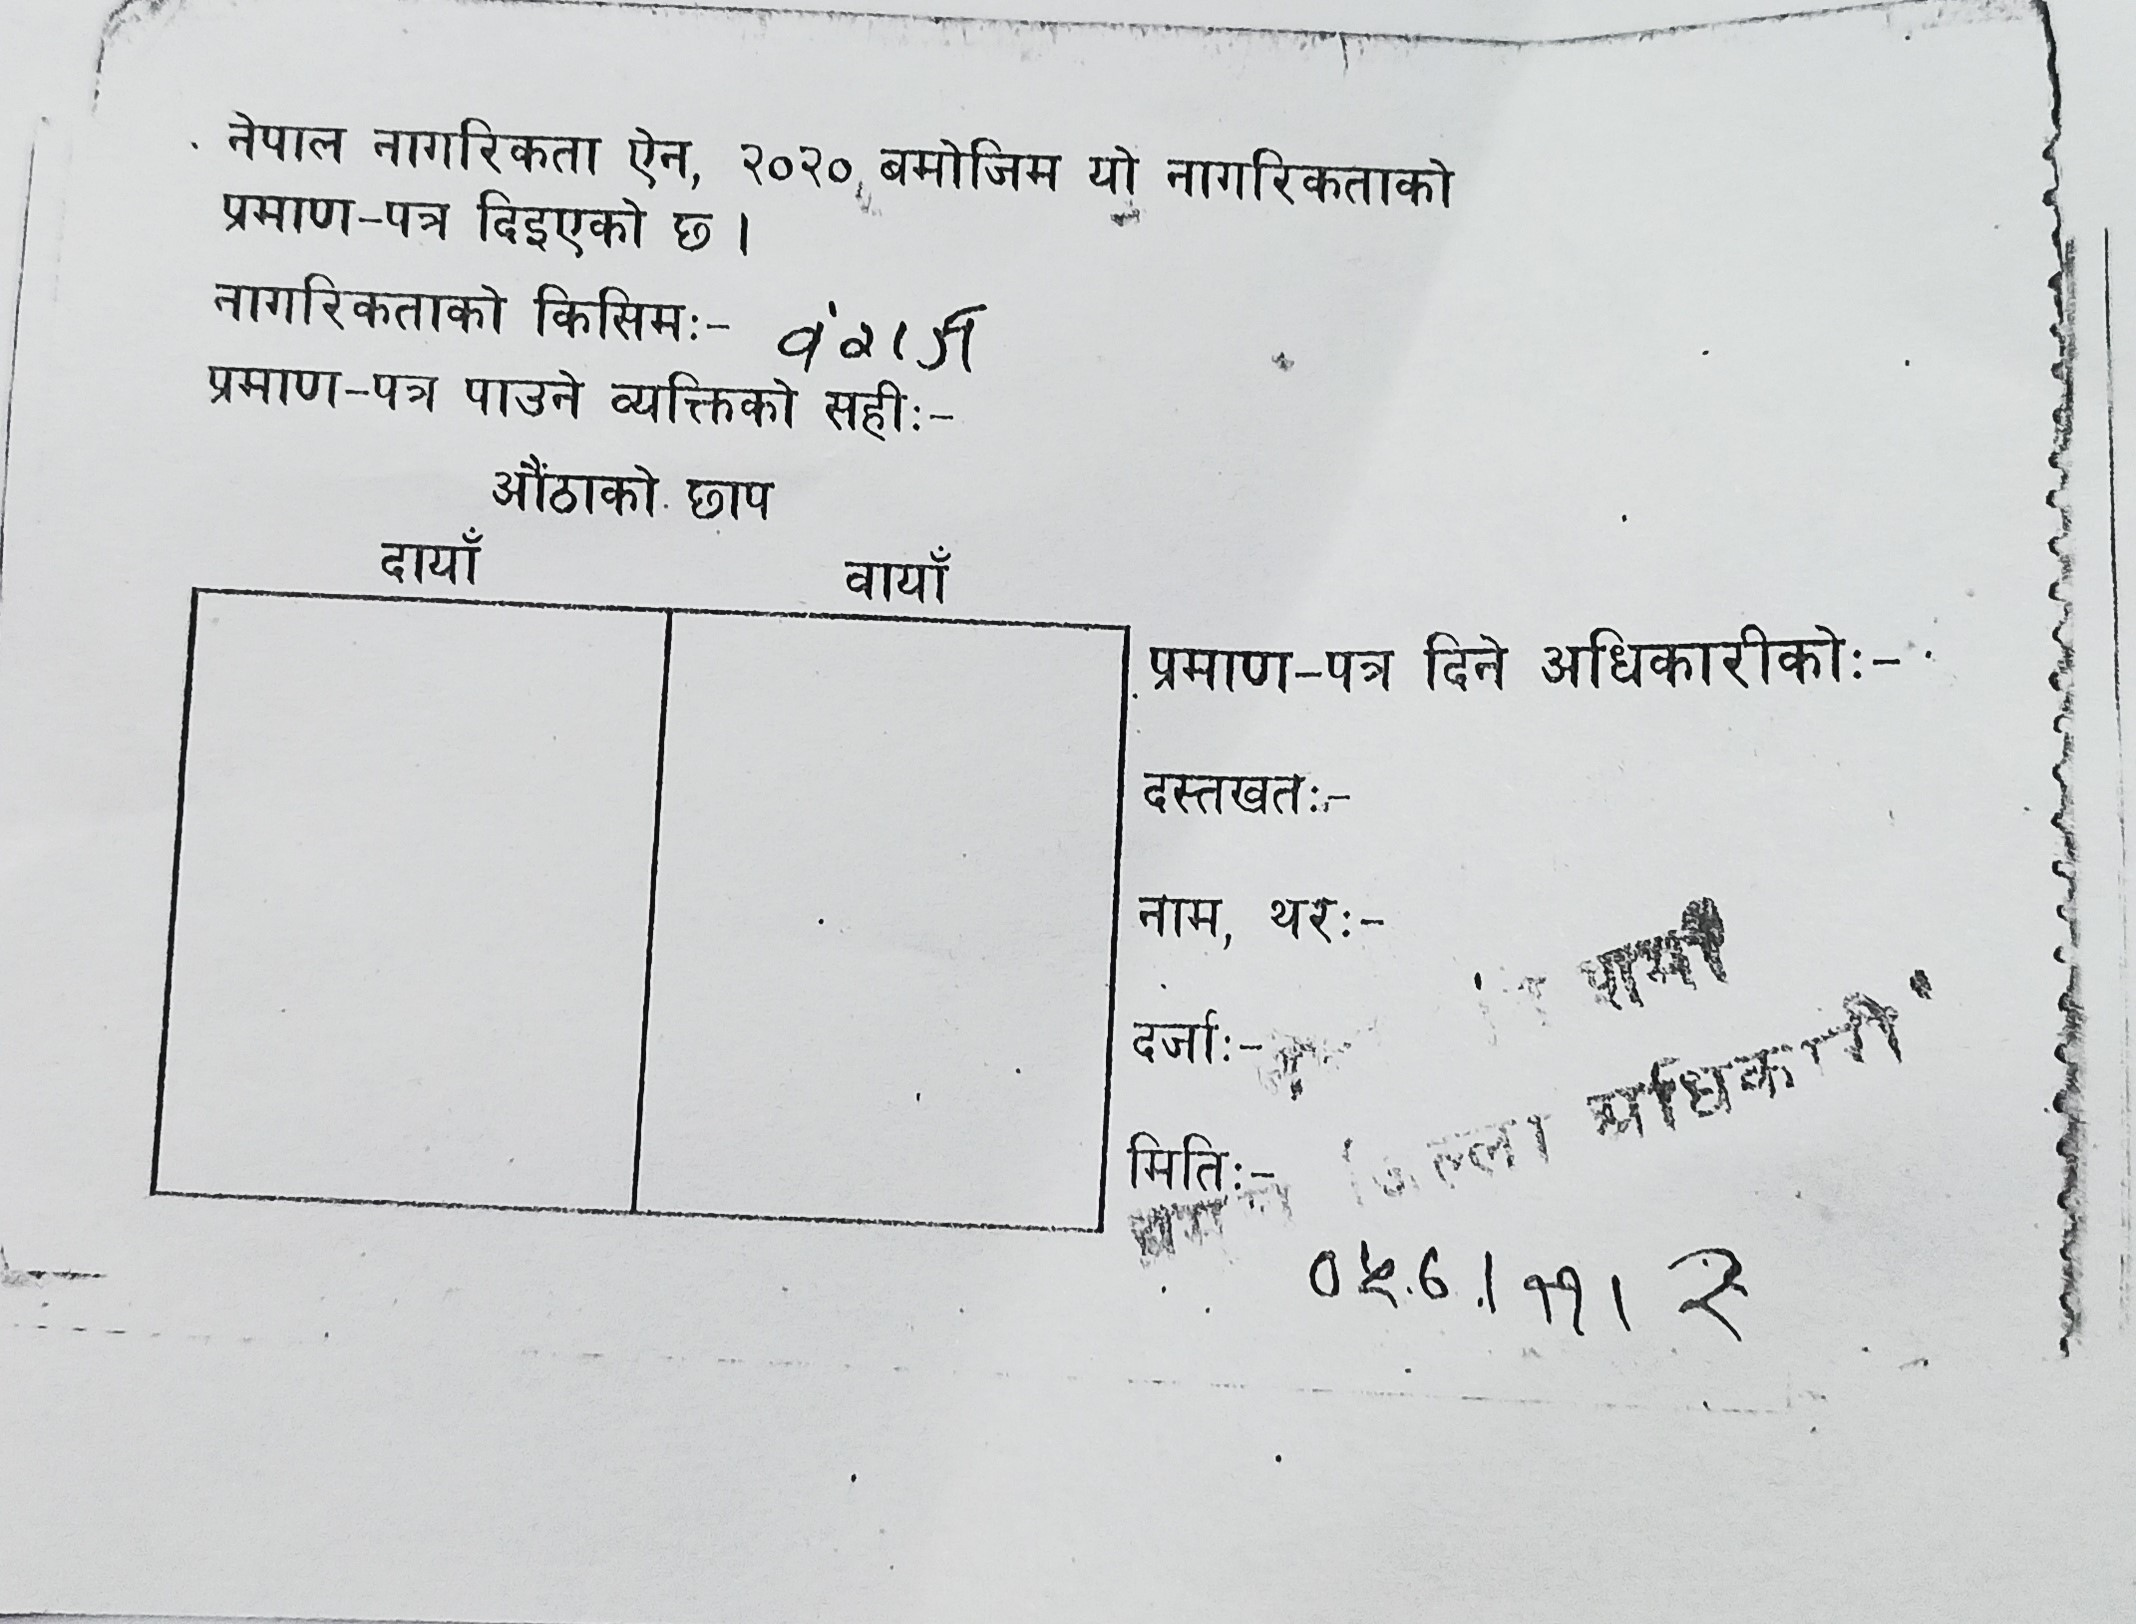 नेपाल नागरिकता ऐन, २०२०, बमोजिम यो नागरिकताको
प्रमाण-पत्र दिइएको छ ।
नागरिकताको किसिमः- वंशज
प्रमाण-पत्र पाउने व्यक्तिको सहीः-
औंठाको छाप
दायाँ वायाँ
प्रमाण-पत्र दिने अधिकारीको:-
दस्तखतः-
नाम, थरः-
शर्मा
दर्जाः-
जिल्ला अधिकारी
मितिः-